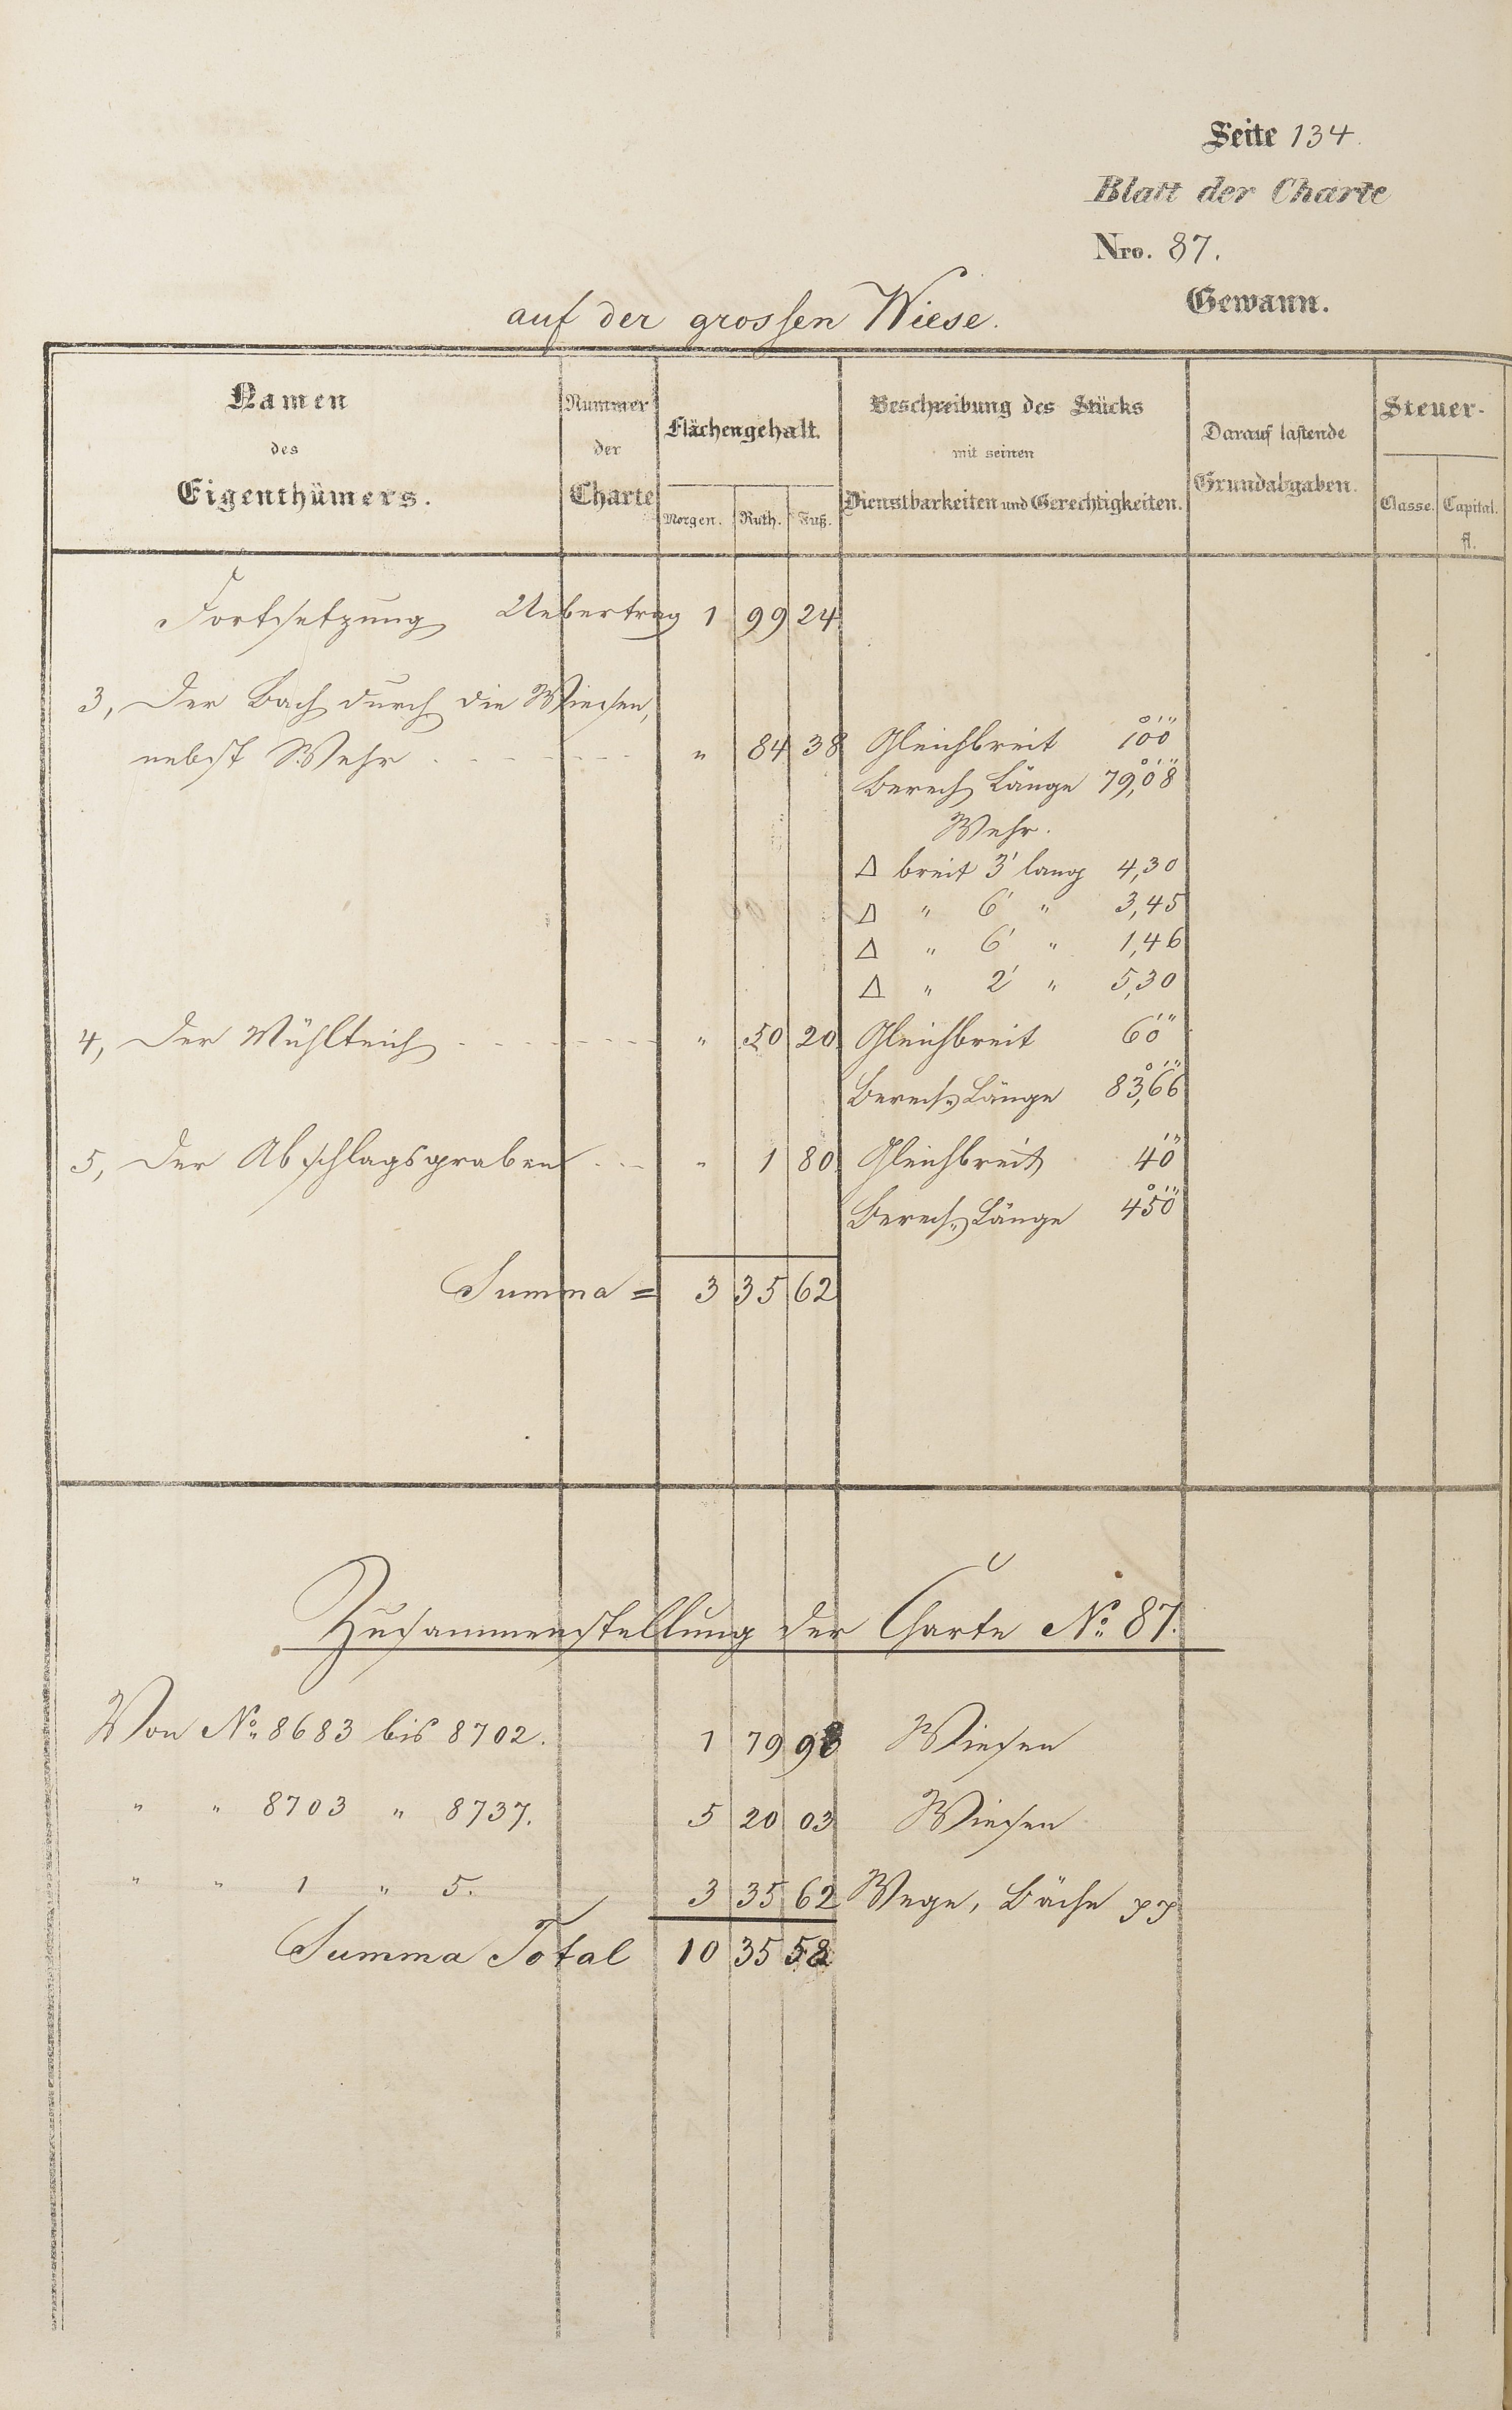 Seite 134.
Blatt der Charte
Nro. 87.
Gewann.
auf der grossen Wiese.
Namen des Eigenthümers.
Nummer der Charte
Flächengehalt.
Morgen. Ruth. Fuß.
Beschreibung des Stücks mit seinen Dienstbarkeiten und Gerechtigkeiten.
Darauf lastende Grundabgaben.
Steuer-
Classe. Capital.
fl.
Fortsetzung Uebertrag 1 99 24
3, Der Bach durch die Wiesen,
nebst Wehr " 84 38 Gleichbreit 1°0'0"
Berech Länge 79,°0'8"
Wehr.
Δ breit 3' lang 4,30
Δ " 6' " 3,45
Δ " 6' " 1,46
Δ " 2' " 5,30
4, Der Mühlteich " 50 20 Gleichbreit 6'0"
Berech. Länge 83,°6'6"
5, Der Abschlagsgraben " 1 80 Gleichbreit 4'0"
Berech. Länge 4°5'0"
Summa = 3 35 62
Zusammenstellung der Charte No. 87.
Von No. 8683 bis 8702. 1 79 93 Wiesen
" " 8703 " 8737. 5 20 03 Wiesen
" " 1 " 5. 3 35 62 Wege, Bäche pp
Summa Total 10 35 58